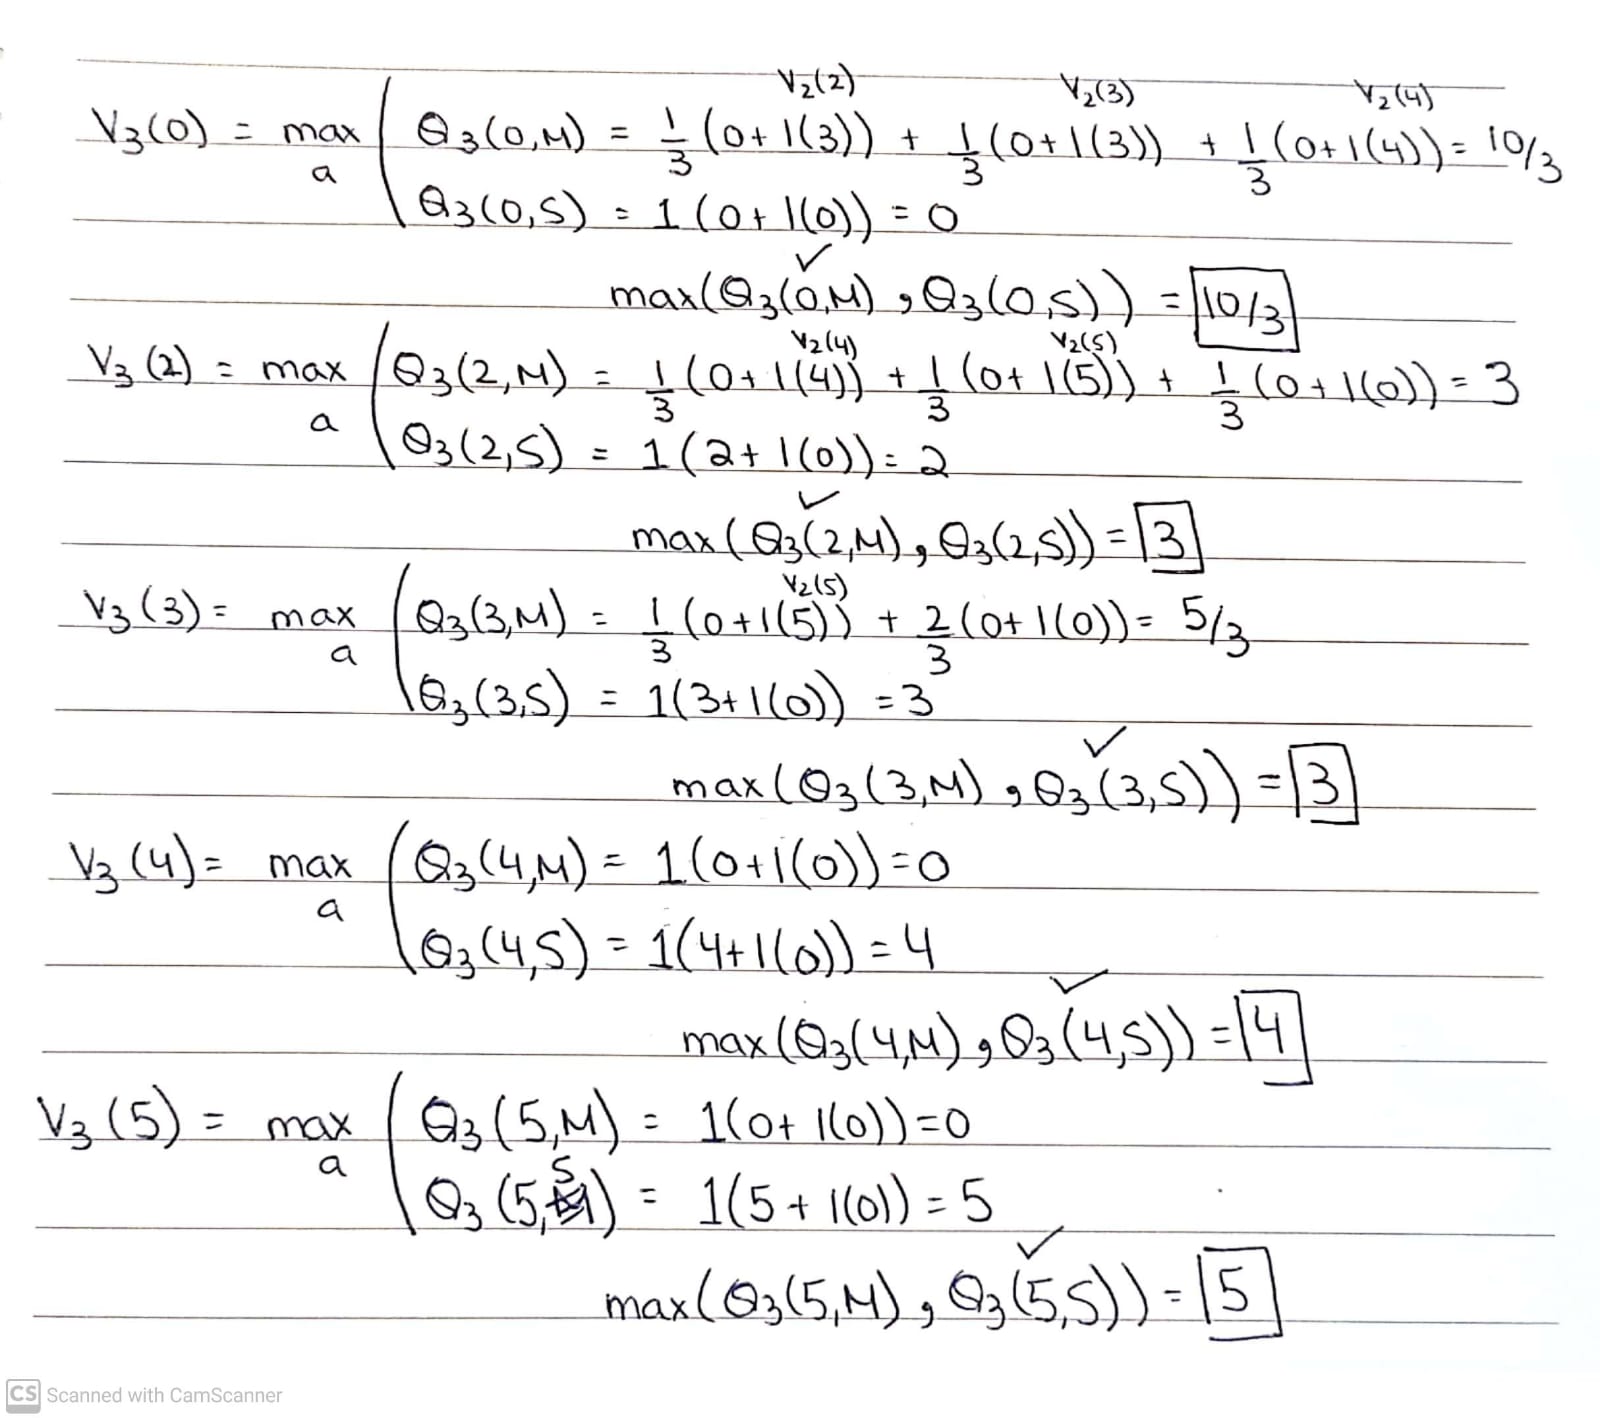 V₂(2) V₂(3) V₂(4)
V₃(0) = max Q₃(0,M) = 1/3 (0+1(3)) + 1/3 (0+1(3)) + 1/3 (0+1(4)) = 10/3
a Q₃(0,S) = 1(0+1(0)) = 0
✓
max(Q₃(0,M), Q₃(0,S)) = 10/3
V₂(4) V₂(5)
V₃(2) = max Q₃(2,M) = 1/3 (0+1(4)) + 1/3 (0+1(5)) + 1/3 (0+1(0)) = 3
a Q₃(2,S) = 1(2+1(0)) = 2
✓
max(Q₃(2,M), Q₃(2,S)) = 3
V₂(5)
V₃(3) = max Q₃(3,M) = 1/3 (0+1(5)) + 2/3 (0+1(0)) = 5/3
a Q₃(3,S) = 1(3+1(0)) = 3
✓
max(Q₃(3,M), Q₃(3,S)) = 3
V₃(4) = max Q₃(4,M) = 1(0+1(0)) = 0
a Q₃(4,S) = 1(4+1(0)) = 4
✓
max(Q₃(4,M), Q₃(4,S)) = 4
V₃(5) = max Q₃(5,M) = 1(0+1(0)) = 0
a Q₃(5,S) = 1(5+1(0)) = 5
✓
max(Q₃(5,M), Q₃(5,S)) = 5
CS Scanned with CamScanner